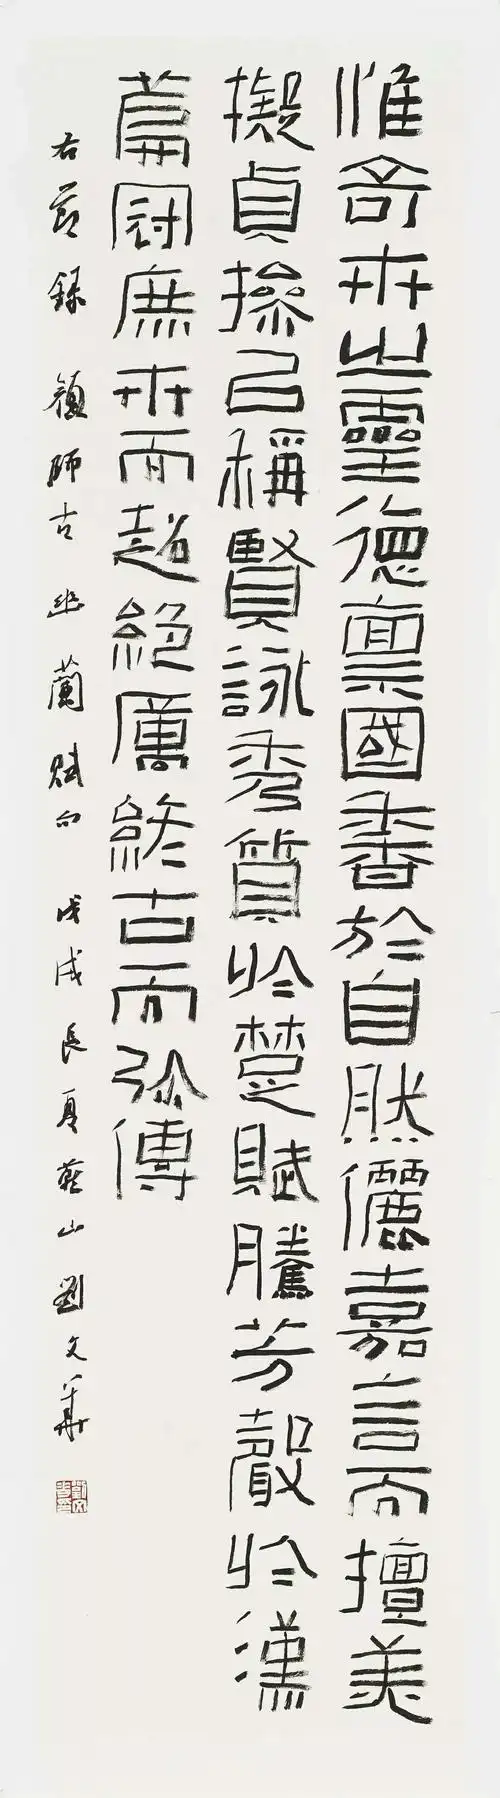 惟奇卉之靈德稟國香於自然儷嘉言而擅美
擬貞操已稱賢詠秀質於楚賦騰芳聲於漢
篇冠庶卉而超絕厲終古而弥傳
右節錄顏師古幽蘭賦句 戊戌長夏燕山劉文華